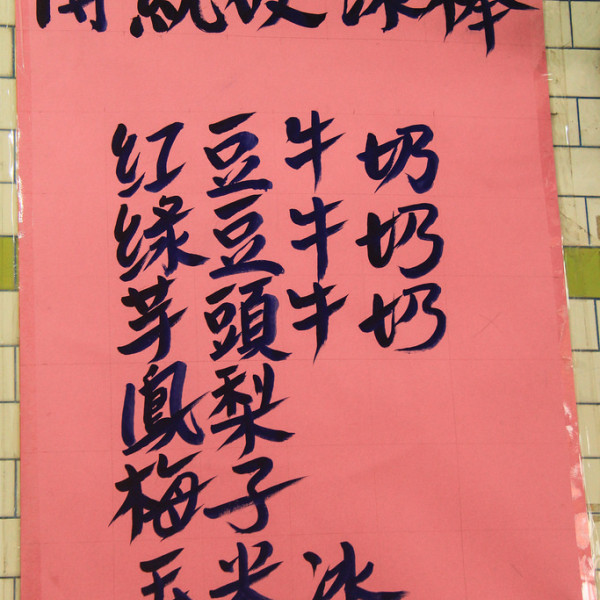 傳統硬冰棒
紅豆牛奶
綠豆牛奶
芋頭牛奶
鳳梨
梅子
玉米冰